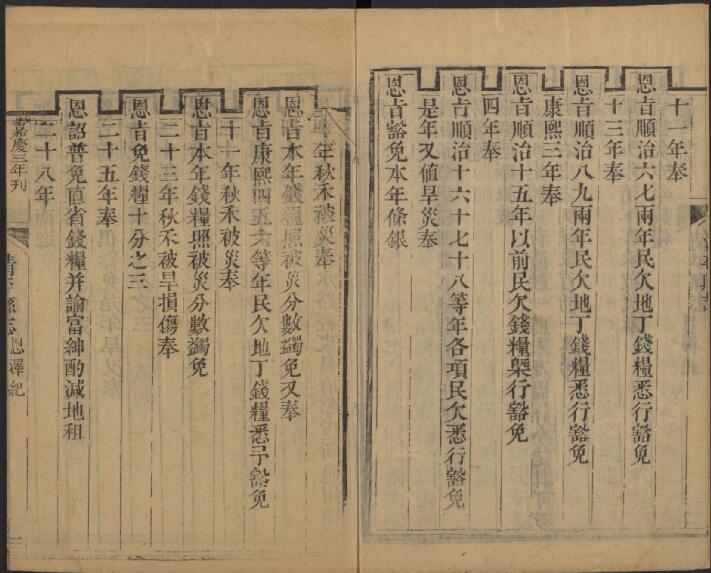 十一年奉
恩旨順治六七兩年民欠地丁錢糧悉行豁免
十三年奉
恩旨順治八九兩年民欠地丁錢糧悉行豁免
康熙三年奉
恩旨順治十五年以前民欠錢糧槩行豁免
四年奉
恩旨順治十六十七十八等年各項民欠悉行豁免
是年又値旱災奉
恩旨豁免本年條銀
年秋禾被災奉
恩旨本年錢糧照被災分數蠲免又奉
恩旨康熙四五六等年民欠地丁錢糧悉予豁免
十一年秋禾被災奉
恩旨本年錢糧照被災分數蠲免
二十三年秋禾被旱損傷奉
恩旨免錢糧十分之三
二十五年奉
恩詔普免直省錢糧并諭富紳酌減地租
二十八年
嘉慶三年刋
恩澤紀